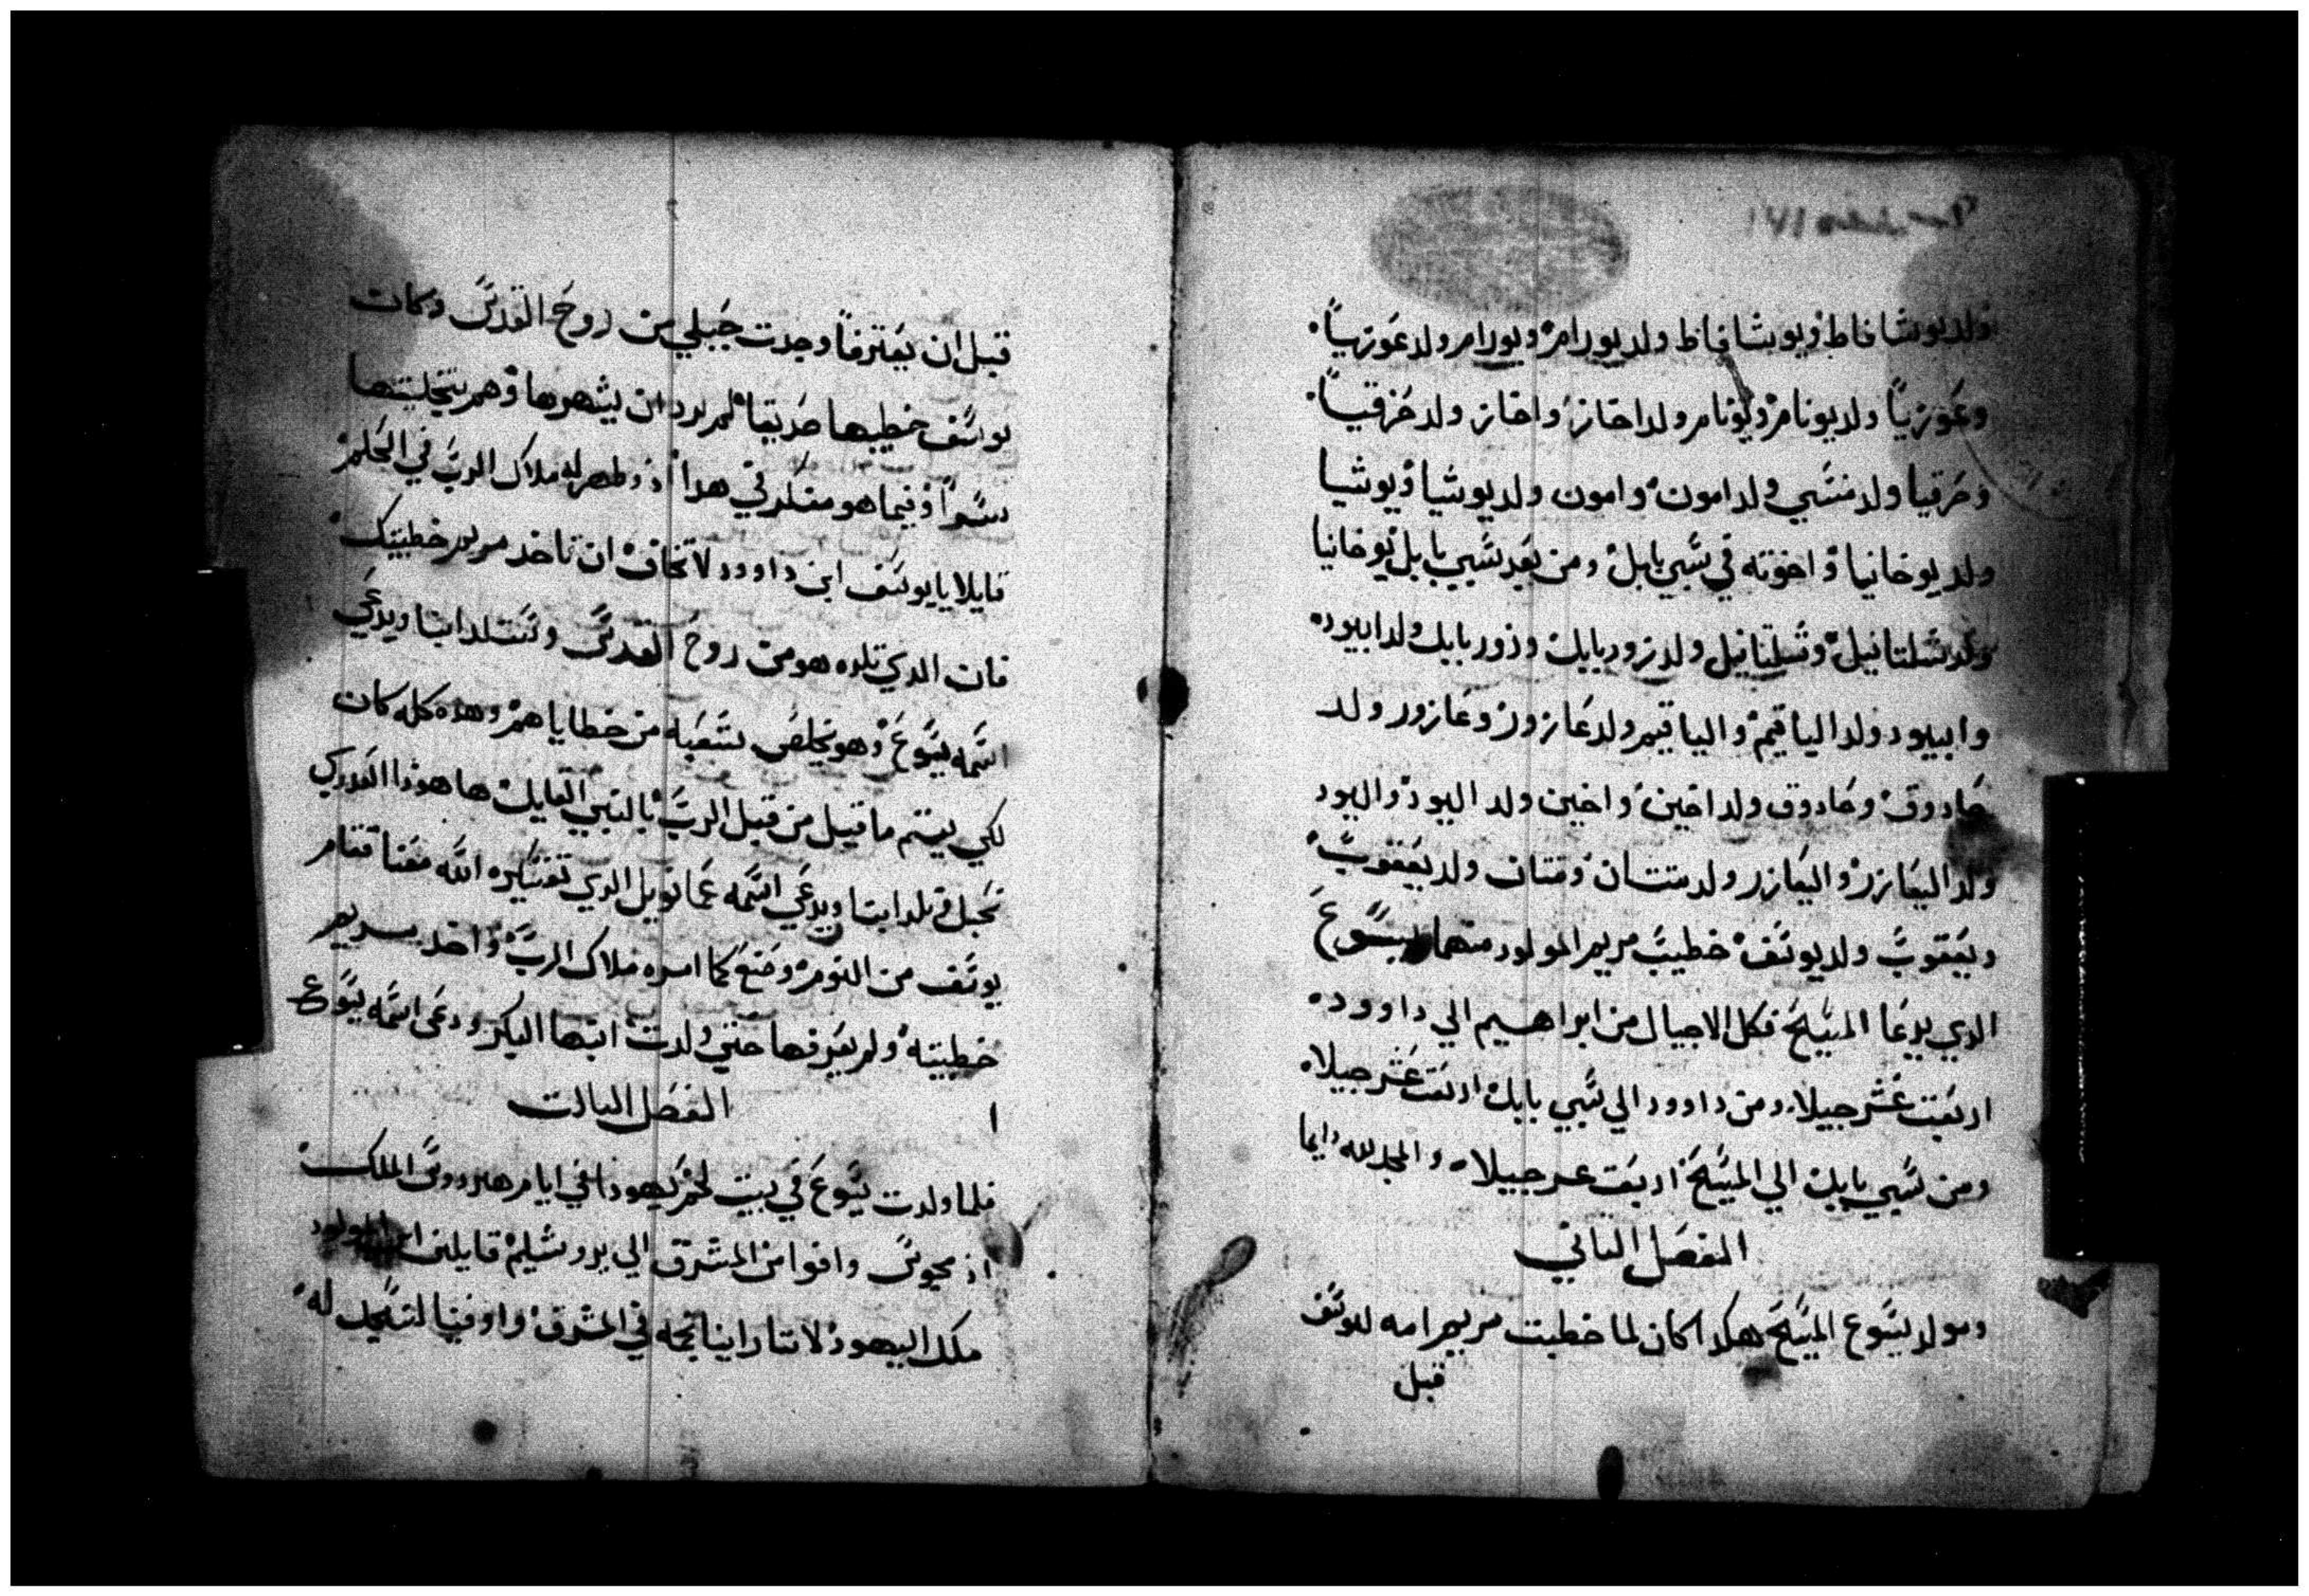 ولد يوشافاط ويوشافاط ولد يورام ويورام ولد عوزيا
وعوزيا ولد يونام ويونام ولد احاز واحاز ولد حزقيا
وحزقيا ولد منسي ولد امون وامون ولد يوشيا ويوشيا
ولد يوخانيا واخوته في سبي بابل ومن بعد سبي بابل يوخانيا
ولد شلتاييل وشلتاييل ولد زوربابل وزوربابل ولد ابيود
وابيود ولد الياقيم والياقيم ولد عازور وعازور ولد
صادوق وصادوق ولد اخين واخين ولد اليود واليود
ولد اليعازر واليعازر ولد متتان ومتتان ولد يعقوب
ويعقوب ولد يوسف خطيب مريم المولود منها يسوع
الدي يدعا المسيح فكل الاجيال من ابراهيم الي داوود
اربعت عشر جيلا ومن داوود الي سبي بابل اربعت عشر جيلا
ومن سبي بابل الي المسيح اربعت عشر جيلا والمجد لله دايما
الفصل التاني
ومولد يسوع المسيح هكدا كان لما خطبت مريم امه ليوسف
قبل
قبل ان يعترفا وجدت حبلي من روح القدس وكان
يوسف خطيبها صديقا لم يرد ان يشهرها وهم بتخليتها
سرا وفيما هو متفكر في هدا اذ ظهر له ملاك الرب في الحلم
قايلا يا يوسف ابن داوود لا تخاف ان تاخد مريم خطيبتك
فان الدي تلده هو من روح القدس وستلد ابنا ويدعي
اسمه يسوع وهو يخلص شعبه من خطاياهم وهده كله كان
لكي يتم ما قيل من قبل الرب بالنبي القايل ها هوذا العدري
تحبل وتلد ابنا ويدعي اسمه عمانويل الدي تفسيره الله معنا فقام
يوسف من النوم وصنع كما امره ملاك الرب واخد مريم
خطيبته ولم يعرفها حتي ولدت ابنها البكر ودعي اسمه يسوع
ا الفصل التالت
فلما ولدت يسوع في بيت لحم يهودا في ايام هيرودس الملك
اذ مجوس وافوا من المشرق الي يروشليم قايلين اين المولود
ملك اليهود لاننا راينا نجمه في المشرق واوفينا لنسجد له